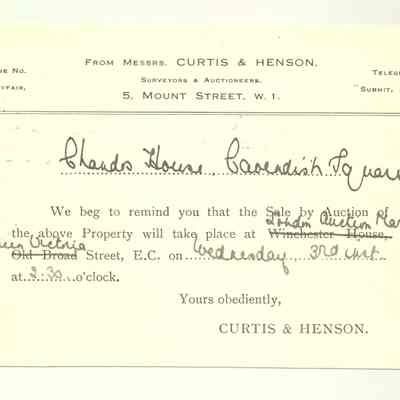 FROM MESSRS. CURTIS & HENSON.
SURVEYORS & AUCTIONEERS.
5, MOUNT STREET, W. 1.
NE NO.
YFAIR,
TELEG
"SUBMIT,
Chandos House, Cavendish Square
We beg to remind you that the Sale by Auction of
London Auction Mar
the above Property will take place at Winchester House,
een Victoria
Old Broad Street, E.C. on Wednesday, 3rd inst
at 2.30 o'clock.
Yours obediently,
CURTIS & HENSON.